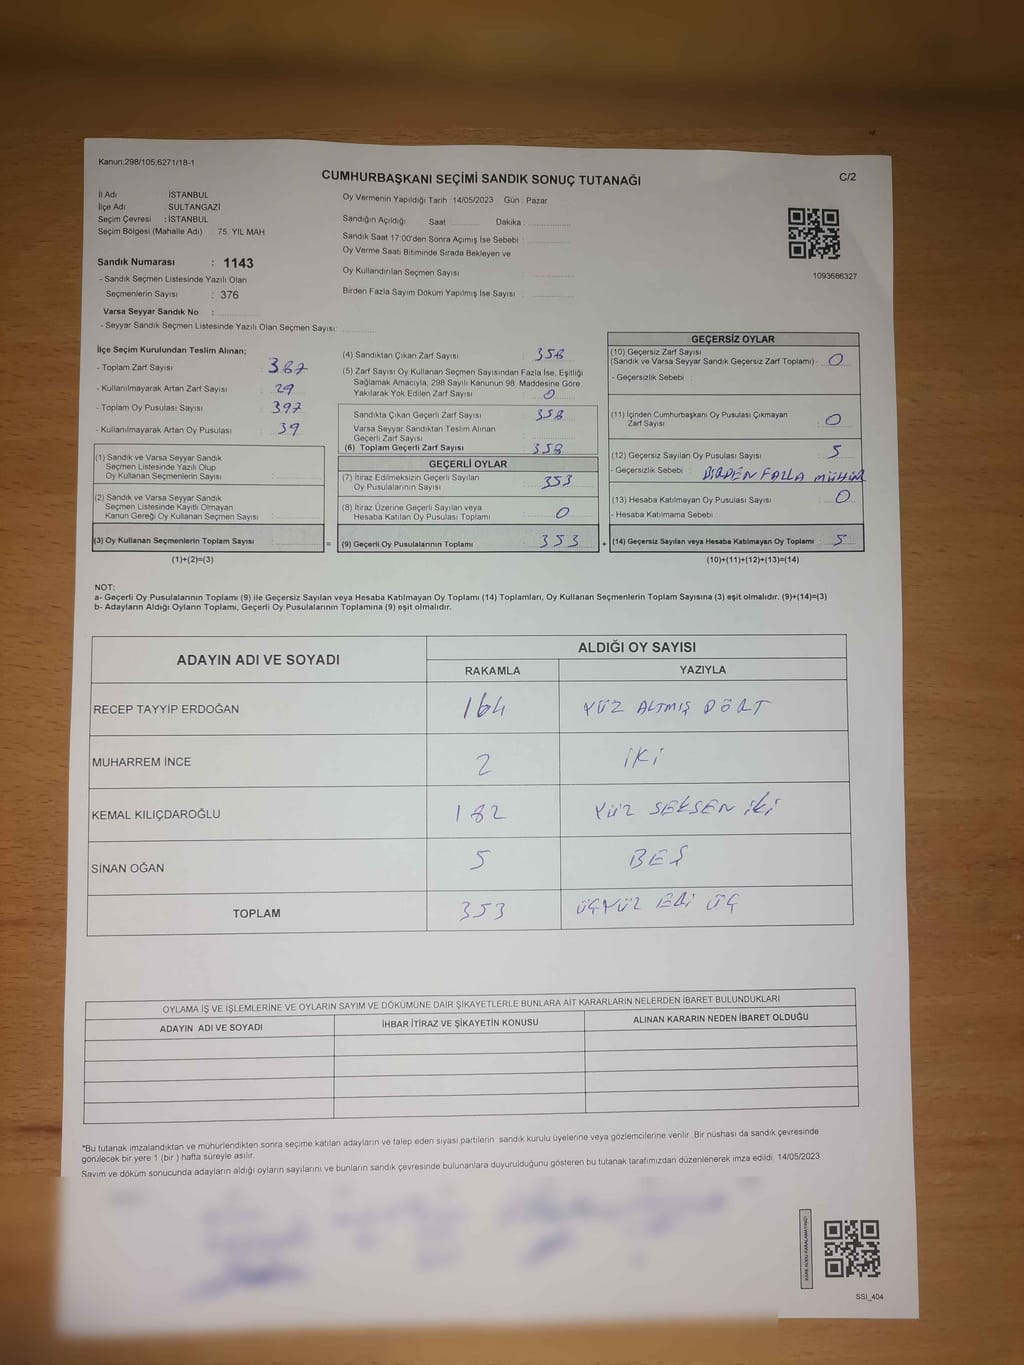 Kanun:298/105;6271/18-1
CUMHURBAŞKANI SEÇİMİ SANDIK SONUÇ TUTANAĞI
C/2
İl Adı İSTANBUL
İlçe Adı : SULTANGAZİ
Seçim Çevresi : İSTANBUL
Seçim Bölgesi (Mahalle Adı) : 75. YIL MAH.
Sandık Numarası : 1143
- Sandık Seçmen Listesinde Yazılı Olan
Seçmenlerin Sayısı : 376
Varsa Seyyar Sandık No :
- Seyyar Sandık Seçmen Listesinde Yazılı Olan Seçmen Sayısı:
Oy Vermenin Yapıldığı Tarih : 14/05/2023 Gün : Pazar
Sandığın Açıldığı Saat Dakika :
Sandık Saat 17:00'den Sonra Açımış İse Sebebi :
Oy Verme Saati Bitiminde Sırada Bekleyen ve
Oy Kullandırılan Seçmen Sayısı :
Birden Fazla Sayım Döküm Yapılmış İse Sayısı :
1093686327
İlçe Seçim Kurulundan Teslim Alınan;
- Toplam Zarf Sayısı : 387
- Kullanılmayarak Artan Zarf Sayısı : 29
- Toplam Oy Pusulası Sayısı : 397
- Kullanılmayarak Artan Oy Pusulası : 39
(1) Sandık ve Varsa Seyyar Sandık
Seçmen Listesinde Yazılı Olup
Oy Kullanan Seçmenlerin Sayısı :
(2) Sandık ve Varsa Seyyar Sandık
Seçmen Listesinde Kayıtlı Olmayan
Kanun Gereği Oy Kullanan Seçmen Sayısı :
(3) Oy Kullanan Seçmenlerin Toplam Sayısı :
(1)+(2)=(3)
(4) Sandıktan Çıkan Zarf Sayısı : 358
(5) Zarf Sayısı Oy Kullanan Seçmen Sayısından Fazla İse, Eşitliği
Sağlamak Amacıyla; 298 Sayılı Kanunun 98. Maddesine Göre
Yakılarak Yok Edilen Zarf Sayısı : 0
Sandıkta Çıkan Geçerli Zarf Sayısı : 358
Varsa Seyyar Sandıktan Teslim Alınan
Geçerli Zarf Sayısı :
(6) Toplam Geçerli Zarf Sayısı : 358
GEÇERLİ OYLAR
(7) İtiraz Edilmeksizin Geçerli Sayılan
Oy Pusulalarının Sayısı : 353
(8) İtiraz Üzerine Geçerli Sayılan veya
Hesaba Katılan Oy Pusulası Toplamı : 0
= (9) Geçerli Oy Pusulalarının Toplamı : 353 +
GEÇERSİZ OYLAR
(10) Geçersiz Zarf Sayısı
(Sandık ve Varsa Seyyar Sandık Geçersiz Zarf Toplamı) : 0
- Geçersizlik Sebebi :
(11) İçinden Cumhurbaşkanı Oy Pusulası Çıkmayan
Zarf Sayısı : 0
(12) Geçersiz Sayılan Oy Pusulası Sayısı : 5
- Geçersizlik Sebebi : BİRDEN FAZLA MÜHÜR
(13) Hesaba Katılmayan Oy Pusulası Sayısı : 0
- Hesaba Katılmama Sebebi :
(14) Geçersiz Sayılan veya Hesaba Katılmayan Oy Toplamı : 5
(10)+(11)+(12)+(13)=(14)
NOT:
a- Geçerli Oy Pusulalarının Toplamı (9) ile Geçersiz Sayılan veya Hesaba Katılmayan Oy Toplamı (14) Toplamları, Oy Kullanan Seçmenlerin Toplam Sayısına (3) eşit olmalıdır. (9)+(14)=(3)
b- Adayların Aldığı Oyların Toplamı, Geçerli Oy Pusulalarının Toplamına (9) eşit olmalıdır.
ADAYIN ADI VE SOYADI
ALDIĞI OY SAYISI
RAKAMLA YAZIYLA
RECEP TAYYİP ERDOĞAN 164 YÜZ ALTMIŞ DÖRT
MUHARREM İNCE 2 İKİ
KEMAL KILIÇDAROĞLU 182 YÜZ SEKSEN İKİ
SİNAN OĞAN 5 BEŞ
TOPLAM 353 ÜÇYÜZ ELLİ ÜÇ
OYLAMA İŞ VE İŞLEMLERİNE VE OYLARIN SAYIM VE DÖKÜMÜNE DAİR ŞİKAYETLERLE BUNLARA AİT KARARLARIN NELERDEN İBARET BULUNDUKLARI
ADAYIN ADI VE SOYADI İHBAR İTİRAZ VE ŞİKAYETİN KONUSU ALINAN KARARIN NEDEN İBARET OLDUĞU
*Bu tutanak imzalandıktan ve mühürlendikten sonra seçime katılan adayların ve talep eden siyasi partilerin, sandık kurulu üyelerine veya gözlemcilerine verilir. Bir nüshası da sandık çevresinde
görülecek bir yere 1 (bir ) hafta süreyle asılır.
Sayım ve döküm sonucunda adayların aldığı oyların sayılarını ve bunların sandık çevresinde bulunanlara duyurulduğunu gösteren bu tutanak tarafımızdan düzenlenerek imza edildi. 14/05/2023
KARE KODU KARALAMAYINIZ!
SSI_404